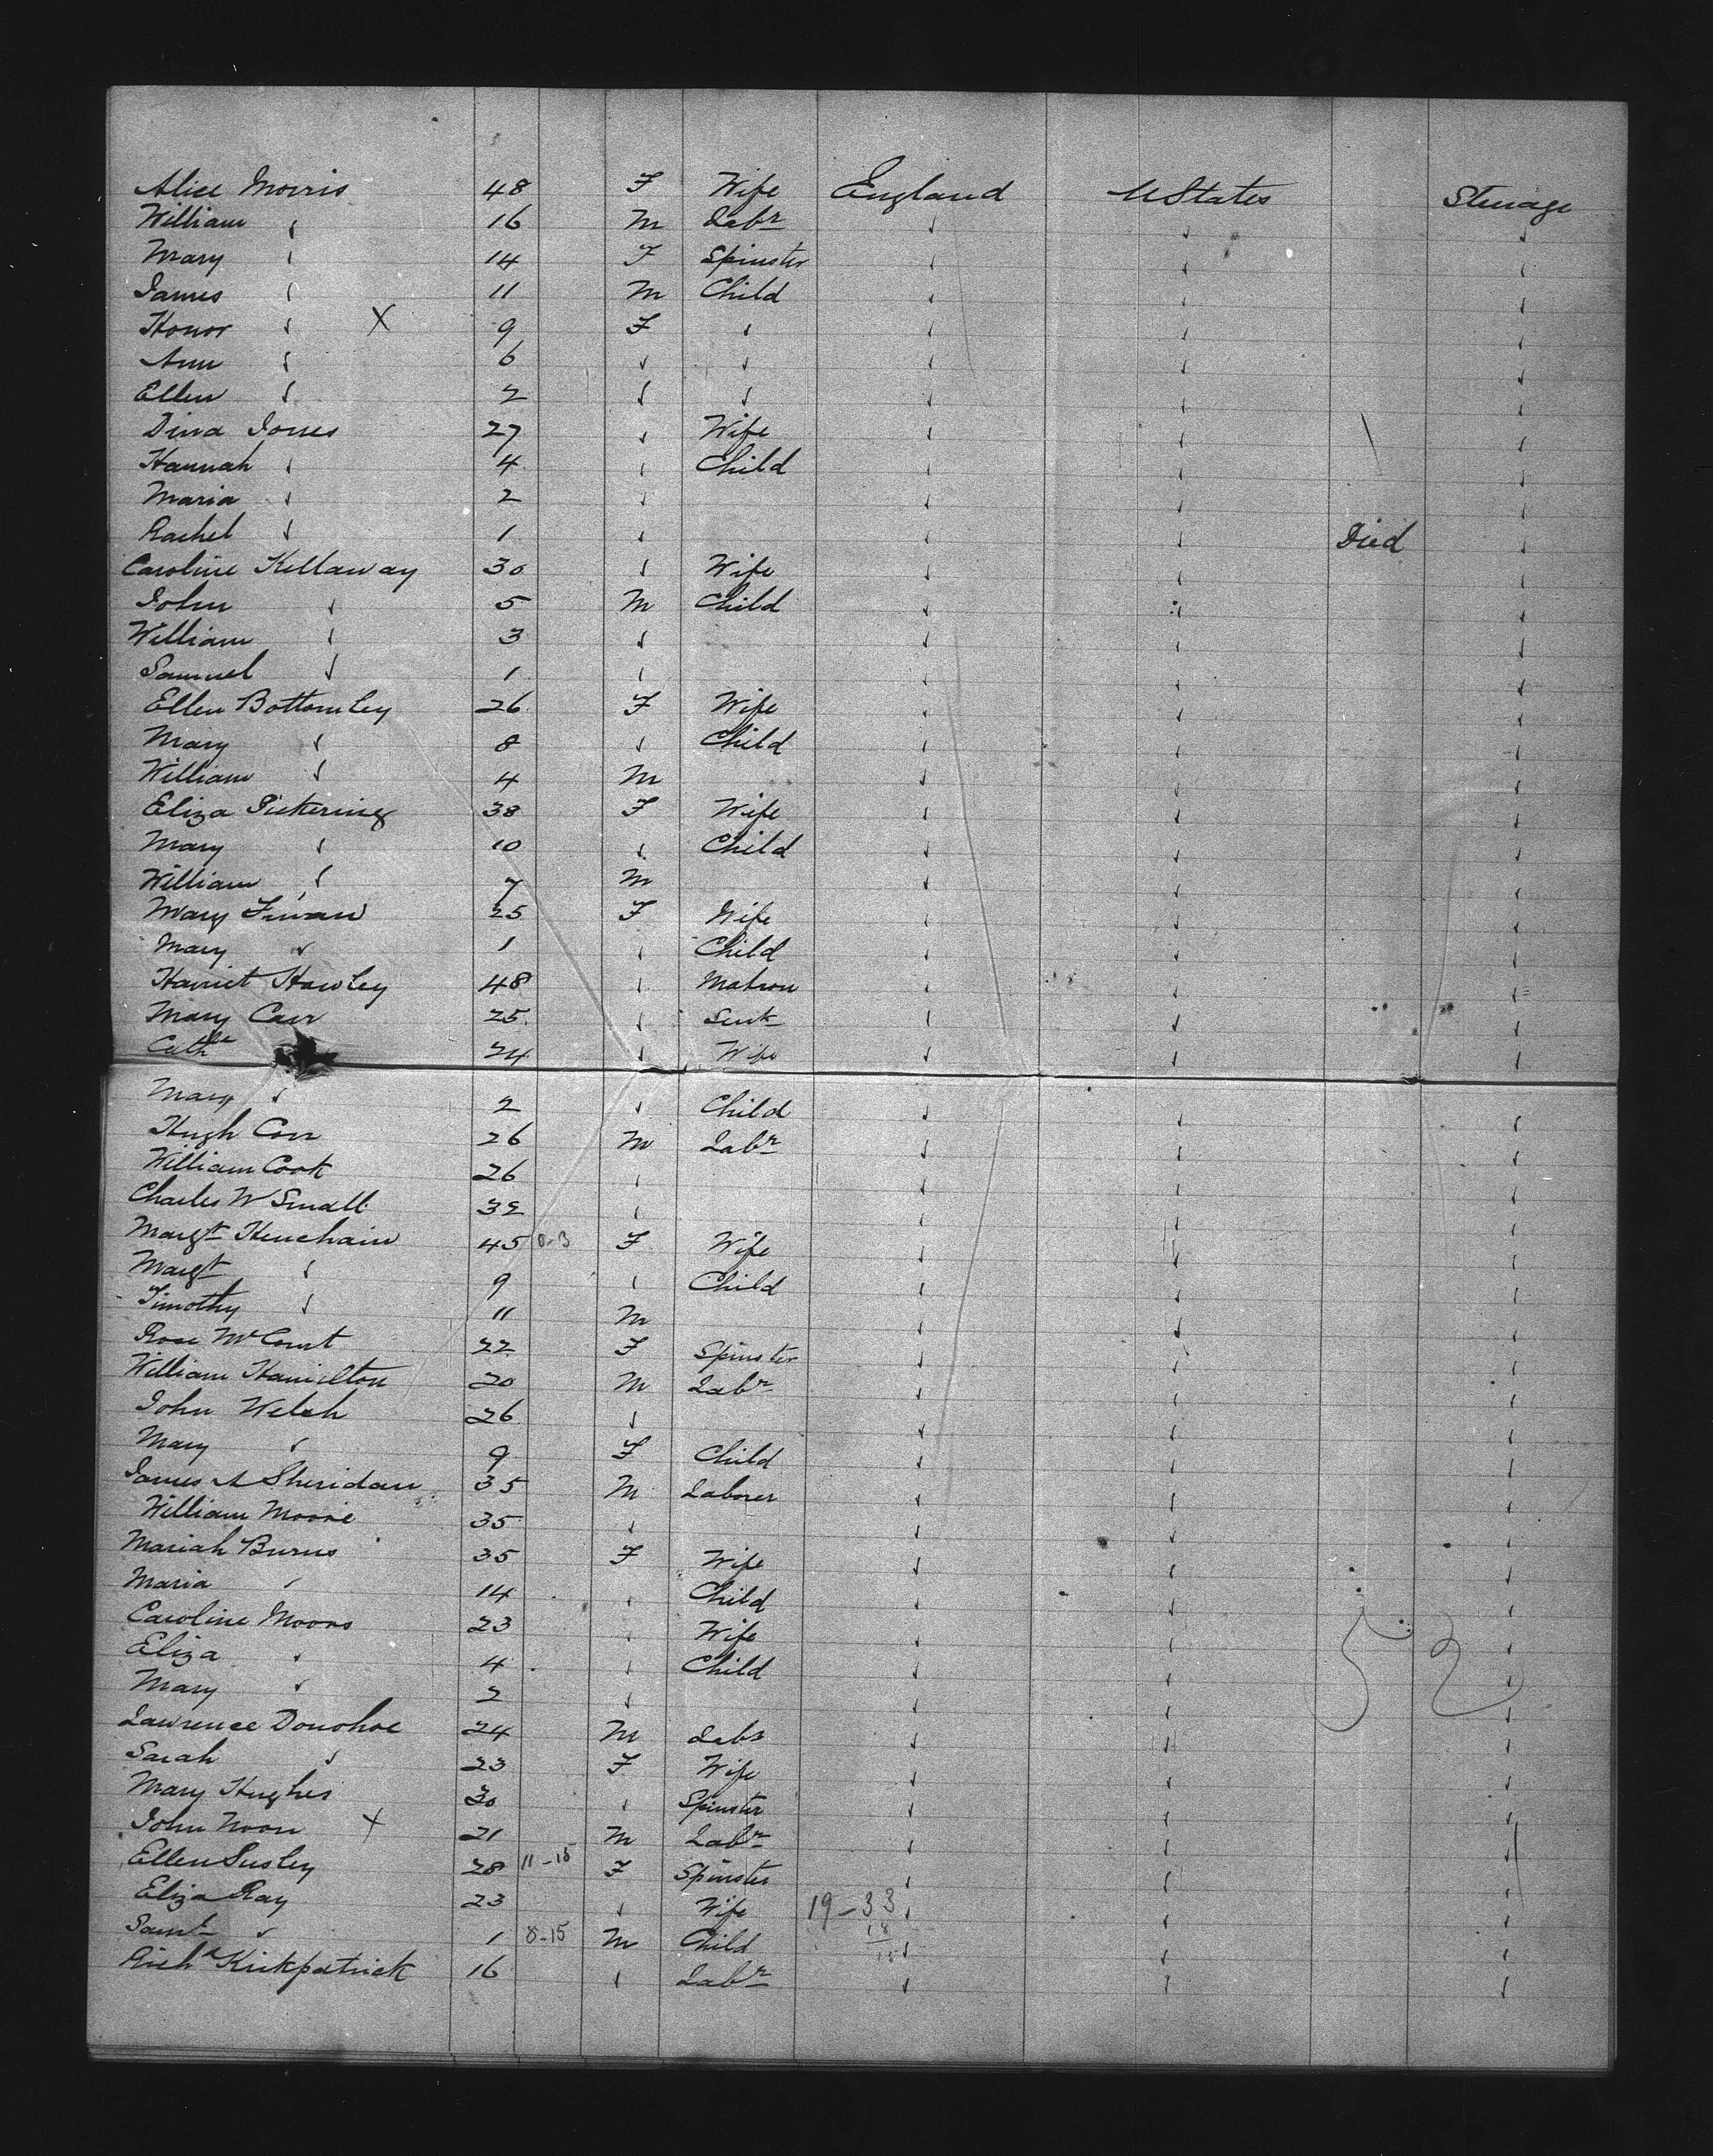 Alice Morris 48 F Wife England UStates Steerage
William " 16 M Labr " " "
Mary " 14 F Spinster " " "
James " 11 M Child " " "
Honor " X 9 F " " " "
Ann " 6 " " " " "
Ellen " 2 " " " " "
Dina Jones 27 " Wife " " "
Hannah " 4 " Child " " "
Maria " 2 " " " "
Rachel " 1 " " " Died "
Caroline Kellaway 30 " Wife " " "
John " 5 M Child " " "
William " 3 " " " "
Samuel " 1 " " " "
Ellen Bottomley 26 F Wife " " "
Mary " 8 " Child " " "
William " 4 M " " "
Eliza Pickering 38 F Wife " " "
Mary " 10 " Child " " "
William " 7 M " " "
Mary Finan 25 F Wife " " "
Mary " 1 " Child " " "
Harriet Hawley 48 " Matron " " "
Mary Carr 25 " Servt " " "
Cathe 24 " Wife " " "
Mary " 2 " Child " " "
Hugh Corr 26 M Labr " " "
William Cook 26 " " " "
Charles W Small 32 " " " "
Margt Henehain 45 F Wife " " "
Margt " 9 " Child " " "
Timothy " 11 M " " "
Rose McCourt 22 F Spinster " " "
William Hamilton 20 M Labr " " "
John Welch 26 " " " "
Mary " 9 F Child " " "
James A Sheridan 35 M Laborer " " "
William Moore 35 " " " "
Mariah Burns 35 F Wife " " "
Maria " 14 " Child " " "
Caroline Moors 23 " Wife " " "
Eliza " 4 " Child " " "
Mary " 2 " " " "
Lawrence Donohoe 24 M Labr " " "
Sarah " 23 F Wife " " "
Mary Hughes 30 " Spinster " " "
John Noon X 21 M Labr " " "
Ellen Susley 28 11-15 F Spinster " " "
Eliza Ray 23 " Wife 19-33 " " "
Saml " 1 8-15 M Child " " "
Richd Kirkpatrick 16 " Labr " " "
52